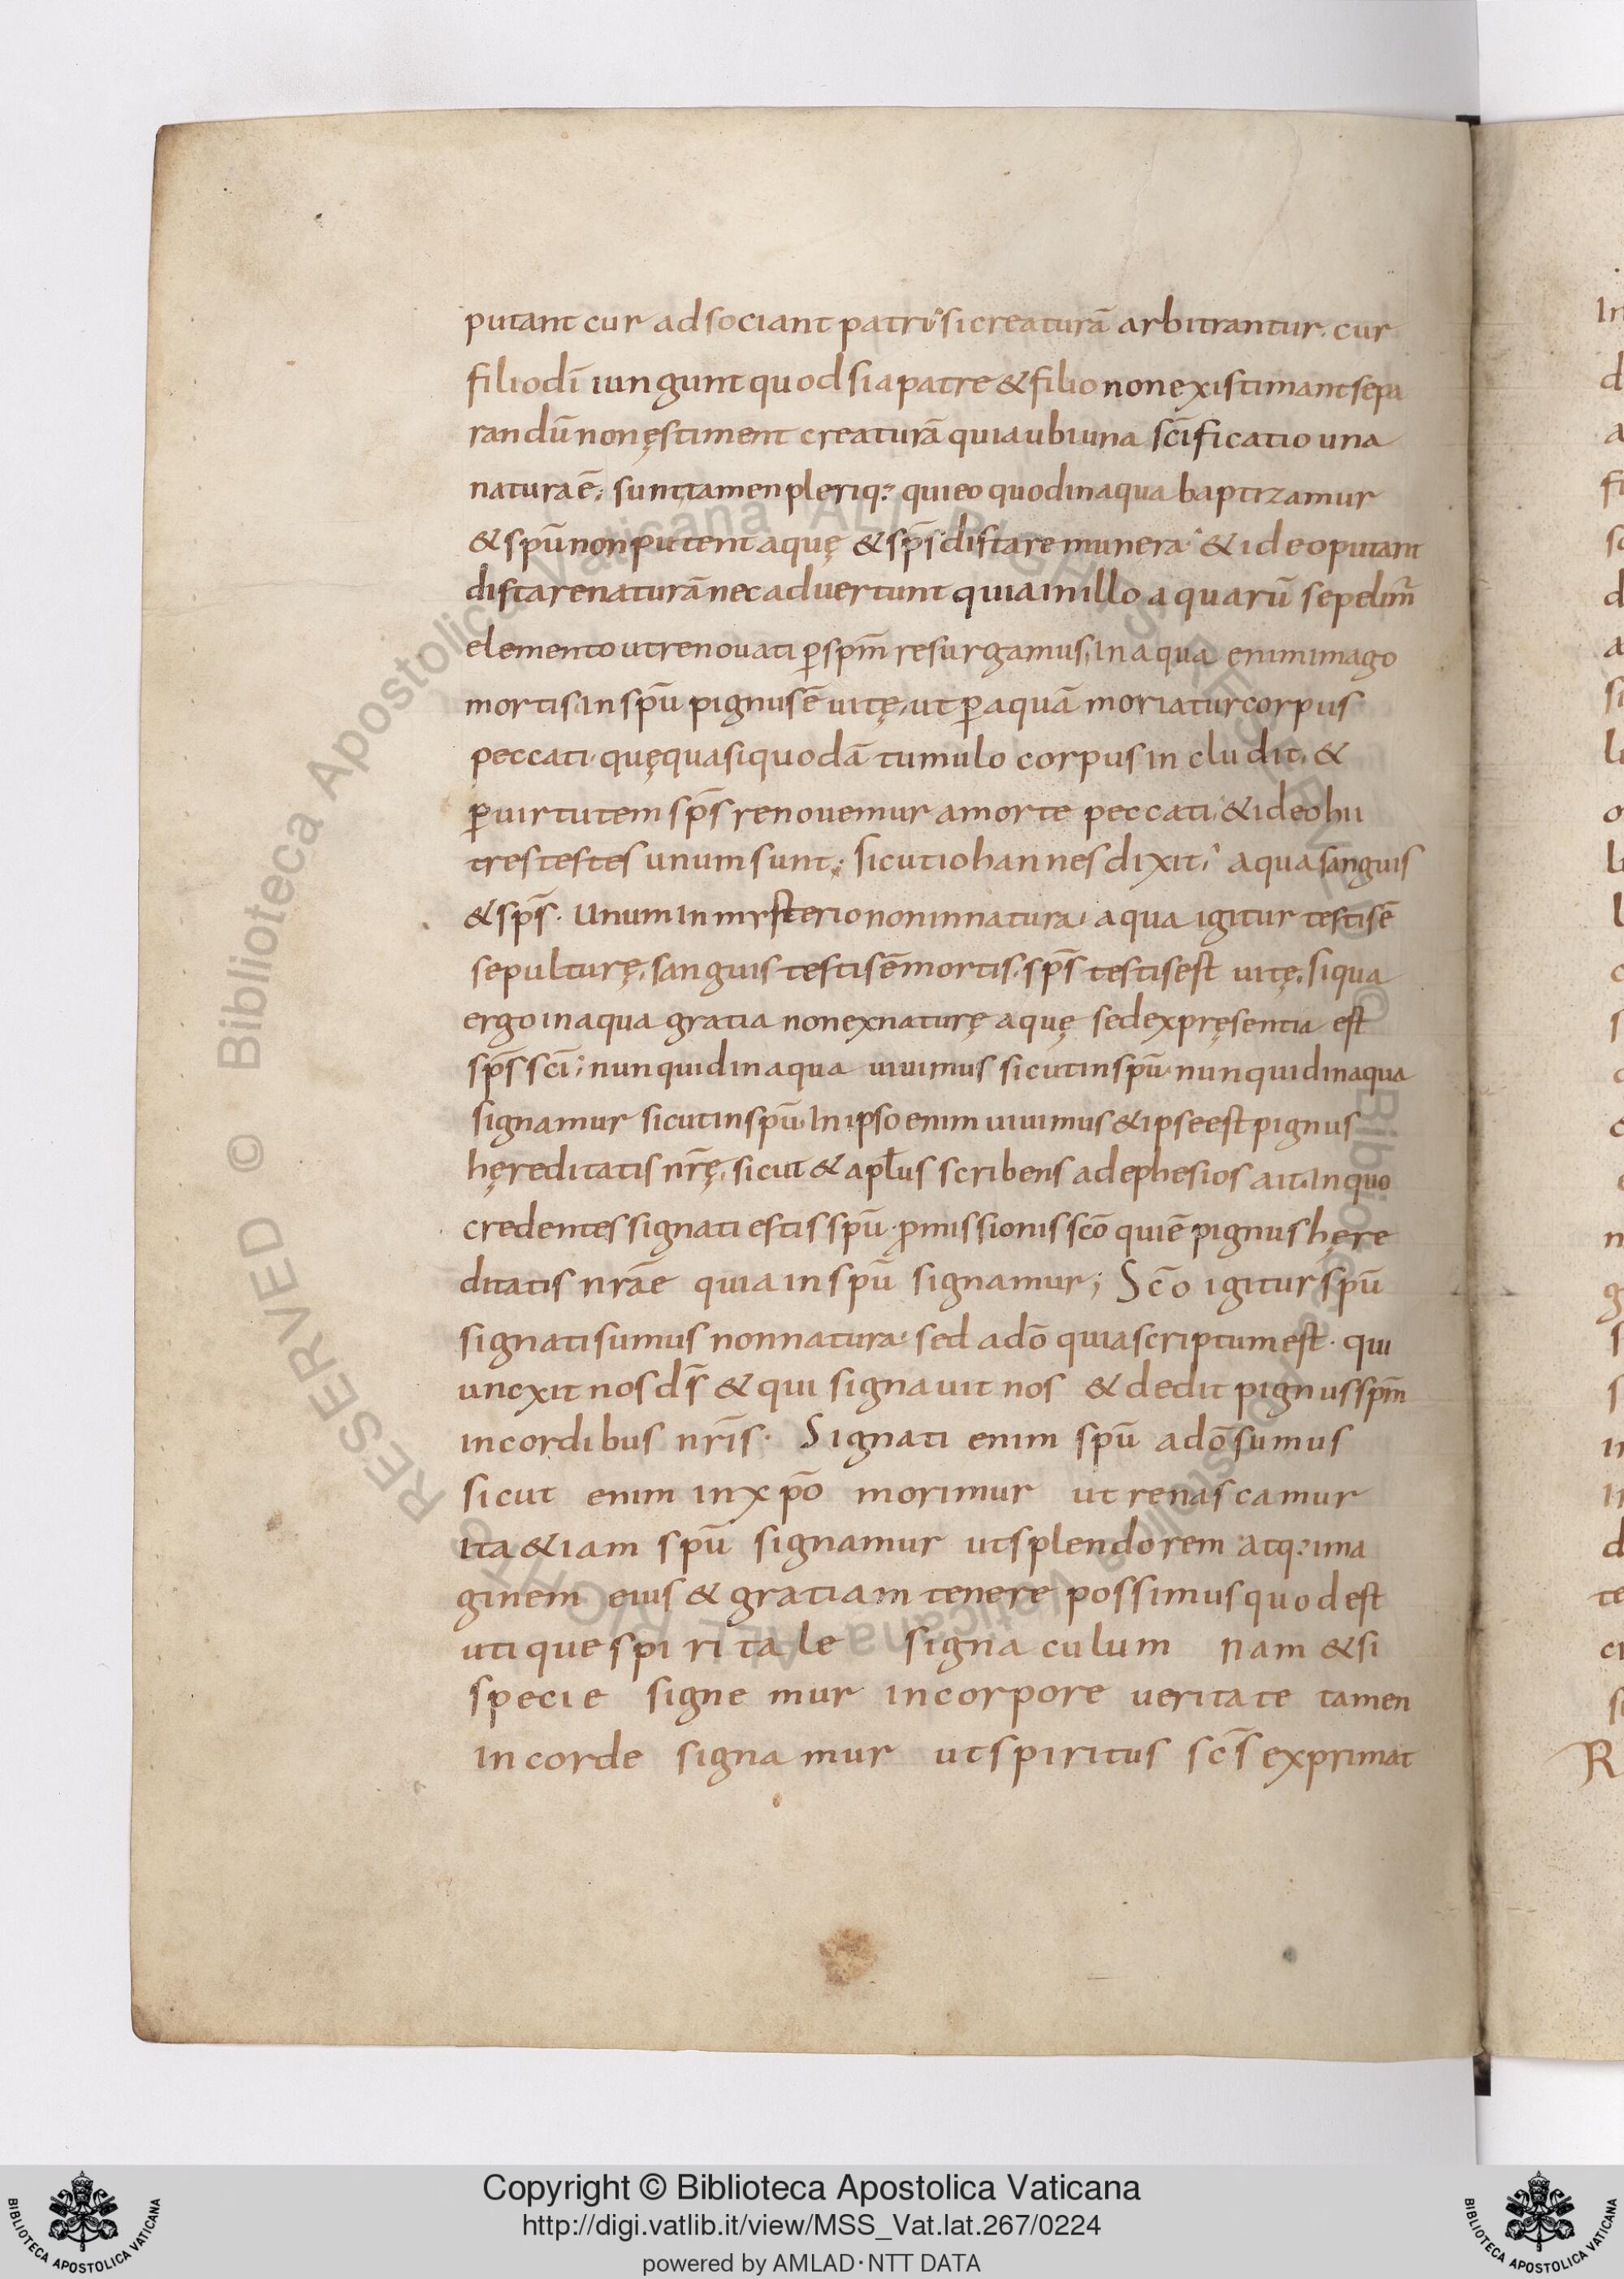 putant cur adsociant patri si creaturā arbitrantur. cur
filio dī iungunt quod si a patre & filio non existimant sepa
randū non ęstiment creaturā quia ubi una scīficatio una
natura ē; sunt tamen pleriq; qui eo quod in aqua baptizamur
& spū non putent aquę & sp̄s distare munera & ideo putant
distare naturā nec aduertunt quia in illo aquarū sepelim̄
elemento ut renouati ꝑ spm̄ resurgamus, In aqua enim imago
mortis in spū pignus ē uitę, ut ꝑ aquā moriatur corpus
peccati, quę quasi quodā tumulo corpus includit, &
ꝑ uirtutem sp̄s renouemur a morte peccati, & ideo hii
tres testes unum sunt; sicut iohannes dixit, aqua sanguis
& sp̄s. Unum in mysterio non in natura, aqua igitur testis ē
sepulturę, sanguis testis ē mortis, sp̄s testis est uitę, si qua
ergo in aqua gratia non ex naturę aquę sed ex pręsentia est
sp̄s scī; nunquid in aqua uiuimus sicut in spū nunquid in aqua
signamur sicut in spū, In ipso enim uiuimus & ipse est pignus
hęreditatis nr̄ę, sicut & apłus scribens ad ephesios ait. In quo
credentes signati estis spū ꝓmissionis scō qui ē pignus hęre
ditatis nrāe quia in spū signamur; Scō igitur spū
signati sumus non natura, sed a dō quia scriptum est. qui
uncxit nos ds̄ & qui signauit nos & dedit pignus spm̄
in cordibus nrīs. Signati enim spū a dō sumus
sicut enim in xp̄o morimur ut renascamur
ita &iam spū signamur ut splendorem atq; ima
ginem eius & gratiam tenere possimus quod est
utique spiritale signaculum nam & si
specie signemur in corpore ueritate tamen
in corde signamur ut spiritus scs̄ exprimat
Copyright © Biblioteca Apostolica Vaticana
http://digi.vatlib.it/view/MSS_Vat.lat.267/0224
powered by AMLAD · NTT DATA
BIBLIOTECA APOSTOLICA VATICANA
BIBLIOTECA APOSTOLICA VATICANA